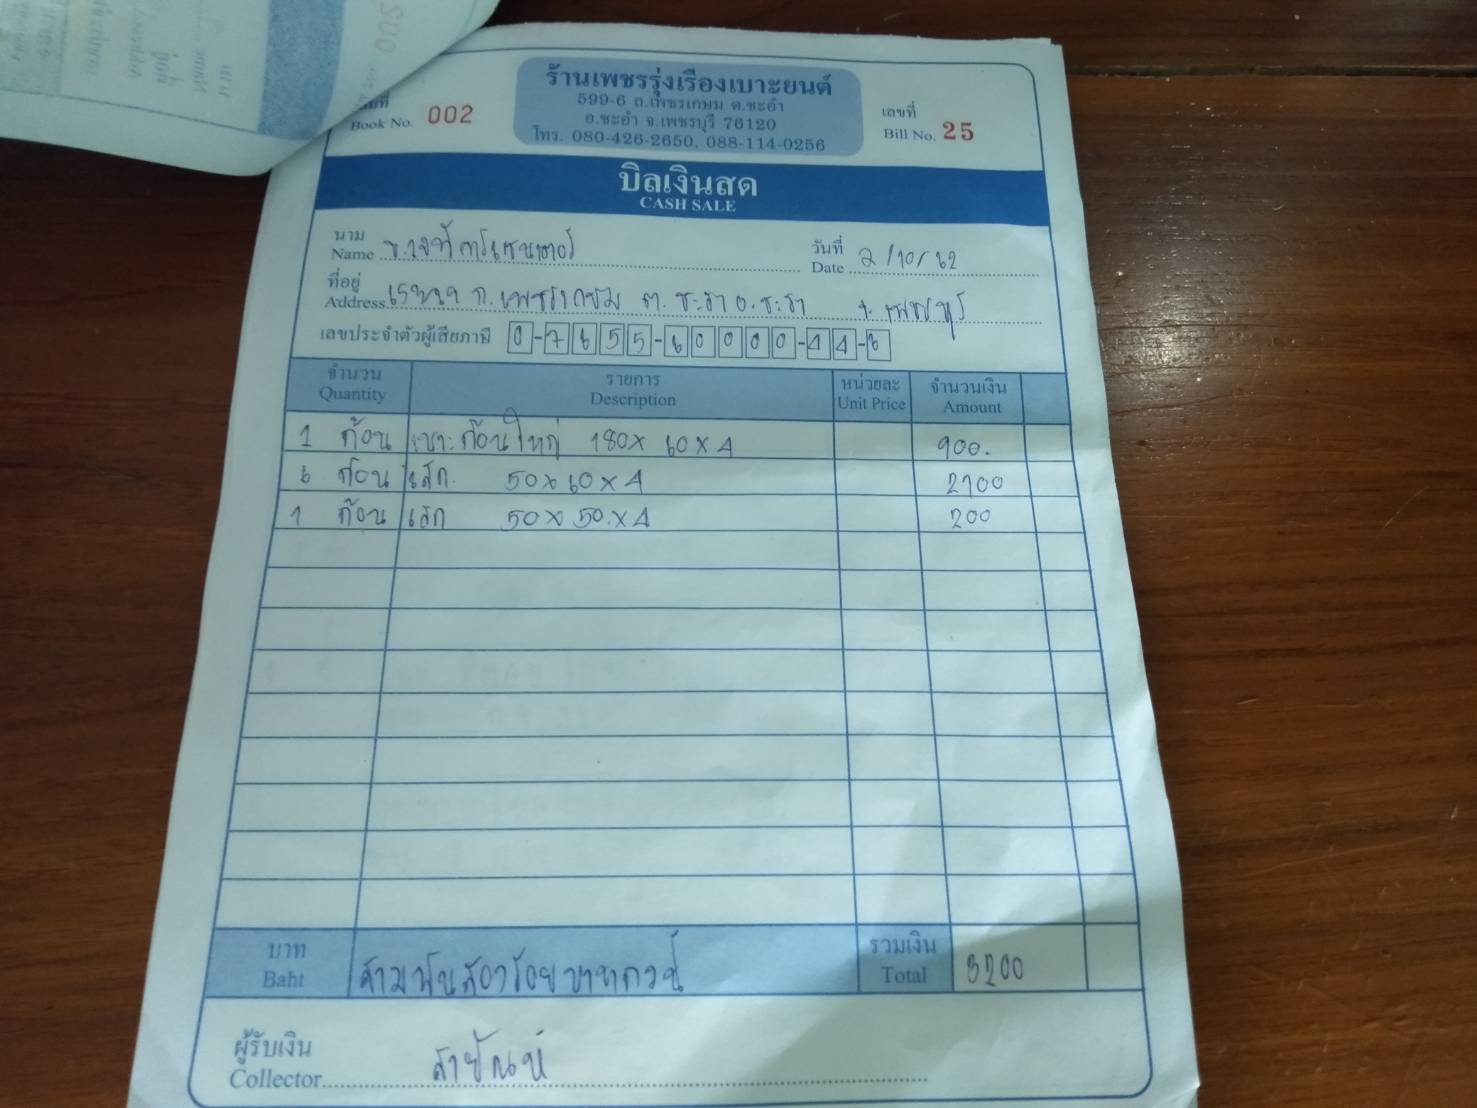 ร้านเพชรรุ่งเรืองเบาะยนต์
599-6 ถ.เพชรเกษม ต.ชะอำ
อ.ชะอำ จ.เพชรบุรี 76120
โทร. 080-426-2650, 088-114-0256
Book No. 002
เลขที่
Bill No. 25
บิลเงินสด
CASH SALE
นาม
Name
วันที่
Date 2/10/62
ที่อยู่
Address ถ. เพชรเกษม ต. ชะอำ อ. ชะอำ จ. เพชรบุรี
เลขประจำตัวผู้เสียภาษี 0-7655-60000-44-6
จำนวน รายการ หน่วยละ จำนวนเงิน
Quantity Description Unit Price Amount
1 ก้อน เบาะก้อนใหญ่ 180 x 60 x 4 900.
6 ก้อน เล็ก. 50 x 60 x 4 2100
1 ก้อน เล็ก 50 x 50. x 4 200
บาท สามพันสองร้อยบาทถวน์ รวมเงิน 3200
Baht Total
ผู้รับเงิน
Collector สายัณห์